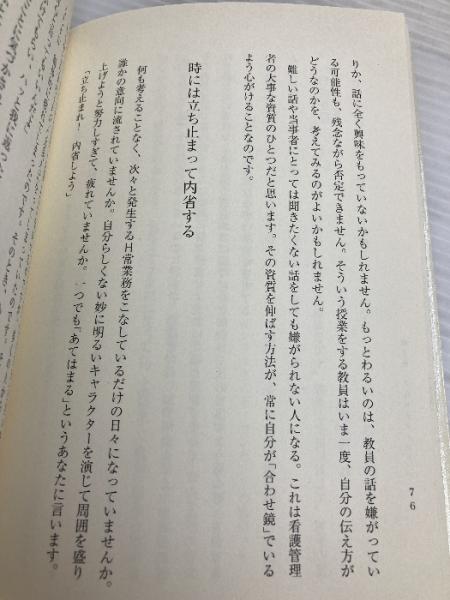 76
りか、話に全く興味をもっていないかもしれません。もっとわるいのは、教員の話を嫌がってい
る可能性も、残念ながら否定できません。そういう授業をする教員はいま一度、自分の伝え方が
どうなのかを、考えてみるのがよいかもしれません。
難しい話や当事者にとっては聞きたくない話をしても嫌がられない人になる。これは看護管理
者の大事な資質のひとつだと思います。その資質を伸ばす方法が、常に自分が「合わせ鏡」でいる
よう心がけることなのです。
時には立ち止まって内省する
何も考えることなく、次々と発生する日常業務をこなしているだけの日々になっていませんか。
誰かの意向に流されていませんか。自分らしくない妙に明るいキャラクターを演じて周囲を盛り
上げようと努力しすぎて、疲れていませんか。一つでも「あてはまる」というあなたに言います。
「立ち止まれ！　内省しよう」